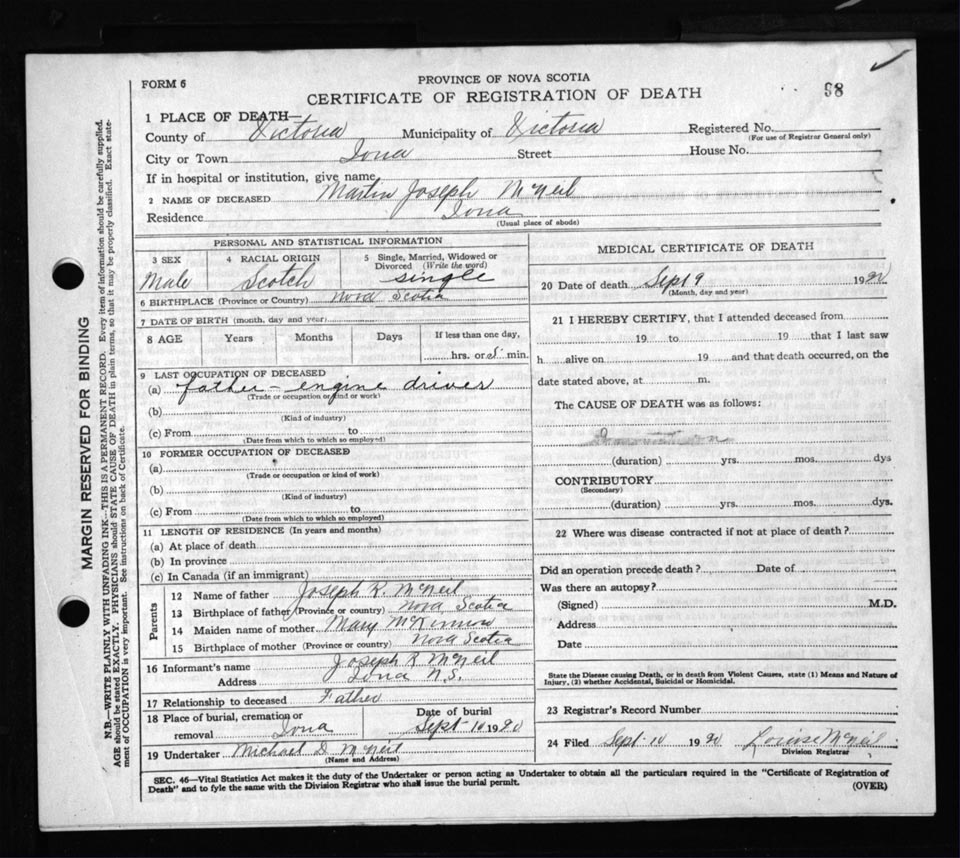 FORM 6
PROVINCE OF NOVA SCOTIA
CERTIFICATE OF REGISTRATION OF DEATH
98
1 PLACE OF DEATH—
County of Victoria Municipality of Victoria Registered No.
(For use of Registrar General only)
City or Town Iona Street House No.
If in hospital or institution, give name
2 NAME OF DECEASED Martin Joseph McNeil
Residence Iona
(Usual place of abode)
PERSONAL AND STATISTICAL INFORMATION
3 SEX 4 RACIAL ORIGIN 5 Single, Married, Widowed or Divorced (Write the word)
Male Scotch single
6 BIRTHPLACE (Province or Country) Nova Scotia
7 DATE OF BIRTH (month, day and year)
8 AGE Years Months Days If less than one day,
hrs. or 5 min.
9 LAST OCCUPATION OF DECEASED
(a) father - engine driver
(Trade or occupation or kind or work)
(b)
(Kind of industry)
(c) From to
(Date from which to which so employed)
10 FORMER OCCUPATION OF DECEASED
(a)
(Trade or occupation or kind of work)
(b)
(Kind of industry)
(c) From to
(Date from which to which so employed)
11 LENGTH OF RESIDENCE (In years and months)
(a) At place of death
(b) In province
(c) In Canada (if an immigrant)
Parents
12 Name of father Joseph R. McNeil
13 Birthplace of father (Province or country) Nova Scotia
14 Maiden name of mother Mary McKinnon
15 Birthplace of mother (Province or country) Nova Scotia
16 Informant's name Joseph R McNeil
Address Iona N.S.
17 Relationship to deceased Father
18 Place of burial, cremation or removal Iona
Date of burial
Sept 10 1930
19 Undertaker Michael D McNeil
(Name and Address)
MEDICAL CERTIFICATE OF DEATH
20 Date of death Sept 9 1930
(Month, day and year)
21 I HEREBY CERTIFY, that I attended deceased from
19 to 19 that I last saw
h alive on 19 and that death occurred, on the
date stated above, at m.
The CAUSE OF DEATH was as follows:
(duration) yrs. mos. dys
CONTRIBUTORY
(Secondary)
(duration) yrs. mos. dys.
22 Where was disease contracted if not at place of death?
Did an operation precede death? Date of
Was there an autopsy?
(Signed) M.D.
Address
Date
State the Disease causing Death, or in death from Violent Causes, state (1) Means and Nature of
Injury, (2) whether Accidental, Suicidal or Homicidal.
23 Registrar's Record Number
24 Filed Sept 10 1930 Louise McNeil
Division Registrar
SEC. 46—Vital Statistics Act makes it the duty of the Undertaker or person acting as Undertaker to obtain all the particulars required in the "Certificate of Registration of
Death" and to fyle the same with the Division Registrar who shall issue the burial permit. (OVER)
MARGIN RESERVED FOR BINDING
N.B.—WRITE PLAINLY WITH UNFADING INK—THIS IS A PERMANENT RECORD. Every item of information should be carefully supplied.
AGE should be stated EXACTLY. PHYSICIANS should STATE CAUSE OF DEATH in plain terms, so that it may be properly classified. Exact statement of OCCUPATION is very important. See instructions on back of Certificate.